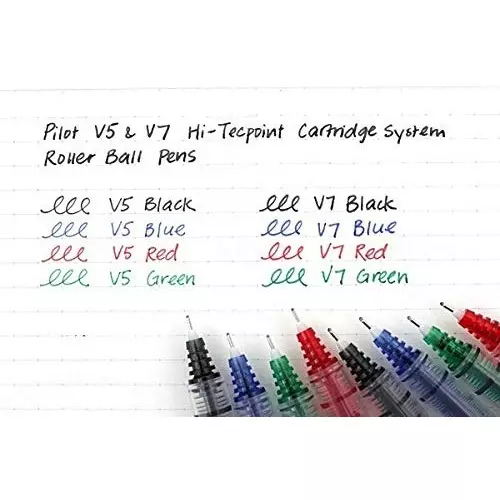 Pilot V5 & V7 Hi-Tecpoint Cartridge System
Roller Ball Pens
lll V5 Black
lll V5 Blue
lll V5 Red
lll V5 Green
lll V7 Black
lll V7 Blue
lll V7 Red
lll V7 Green